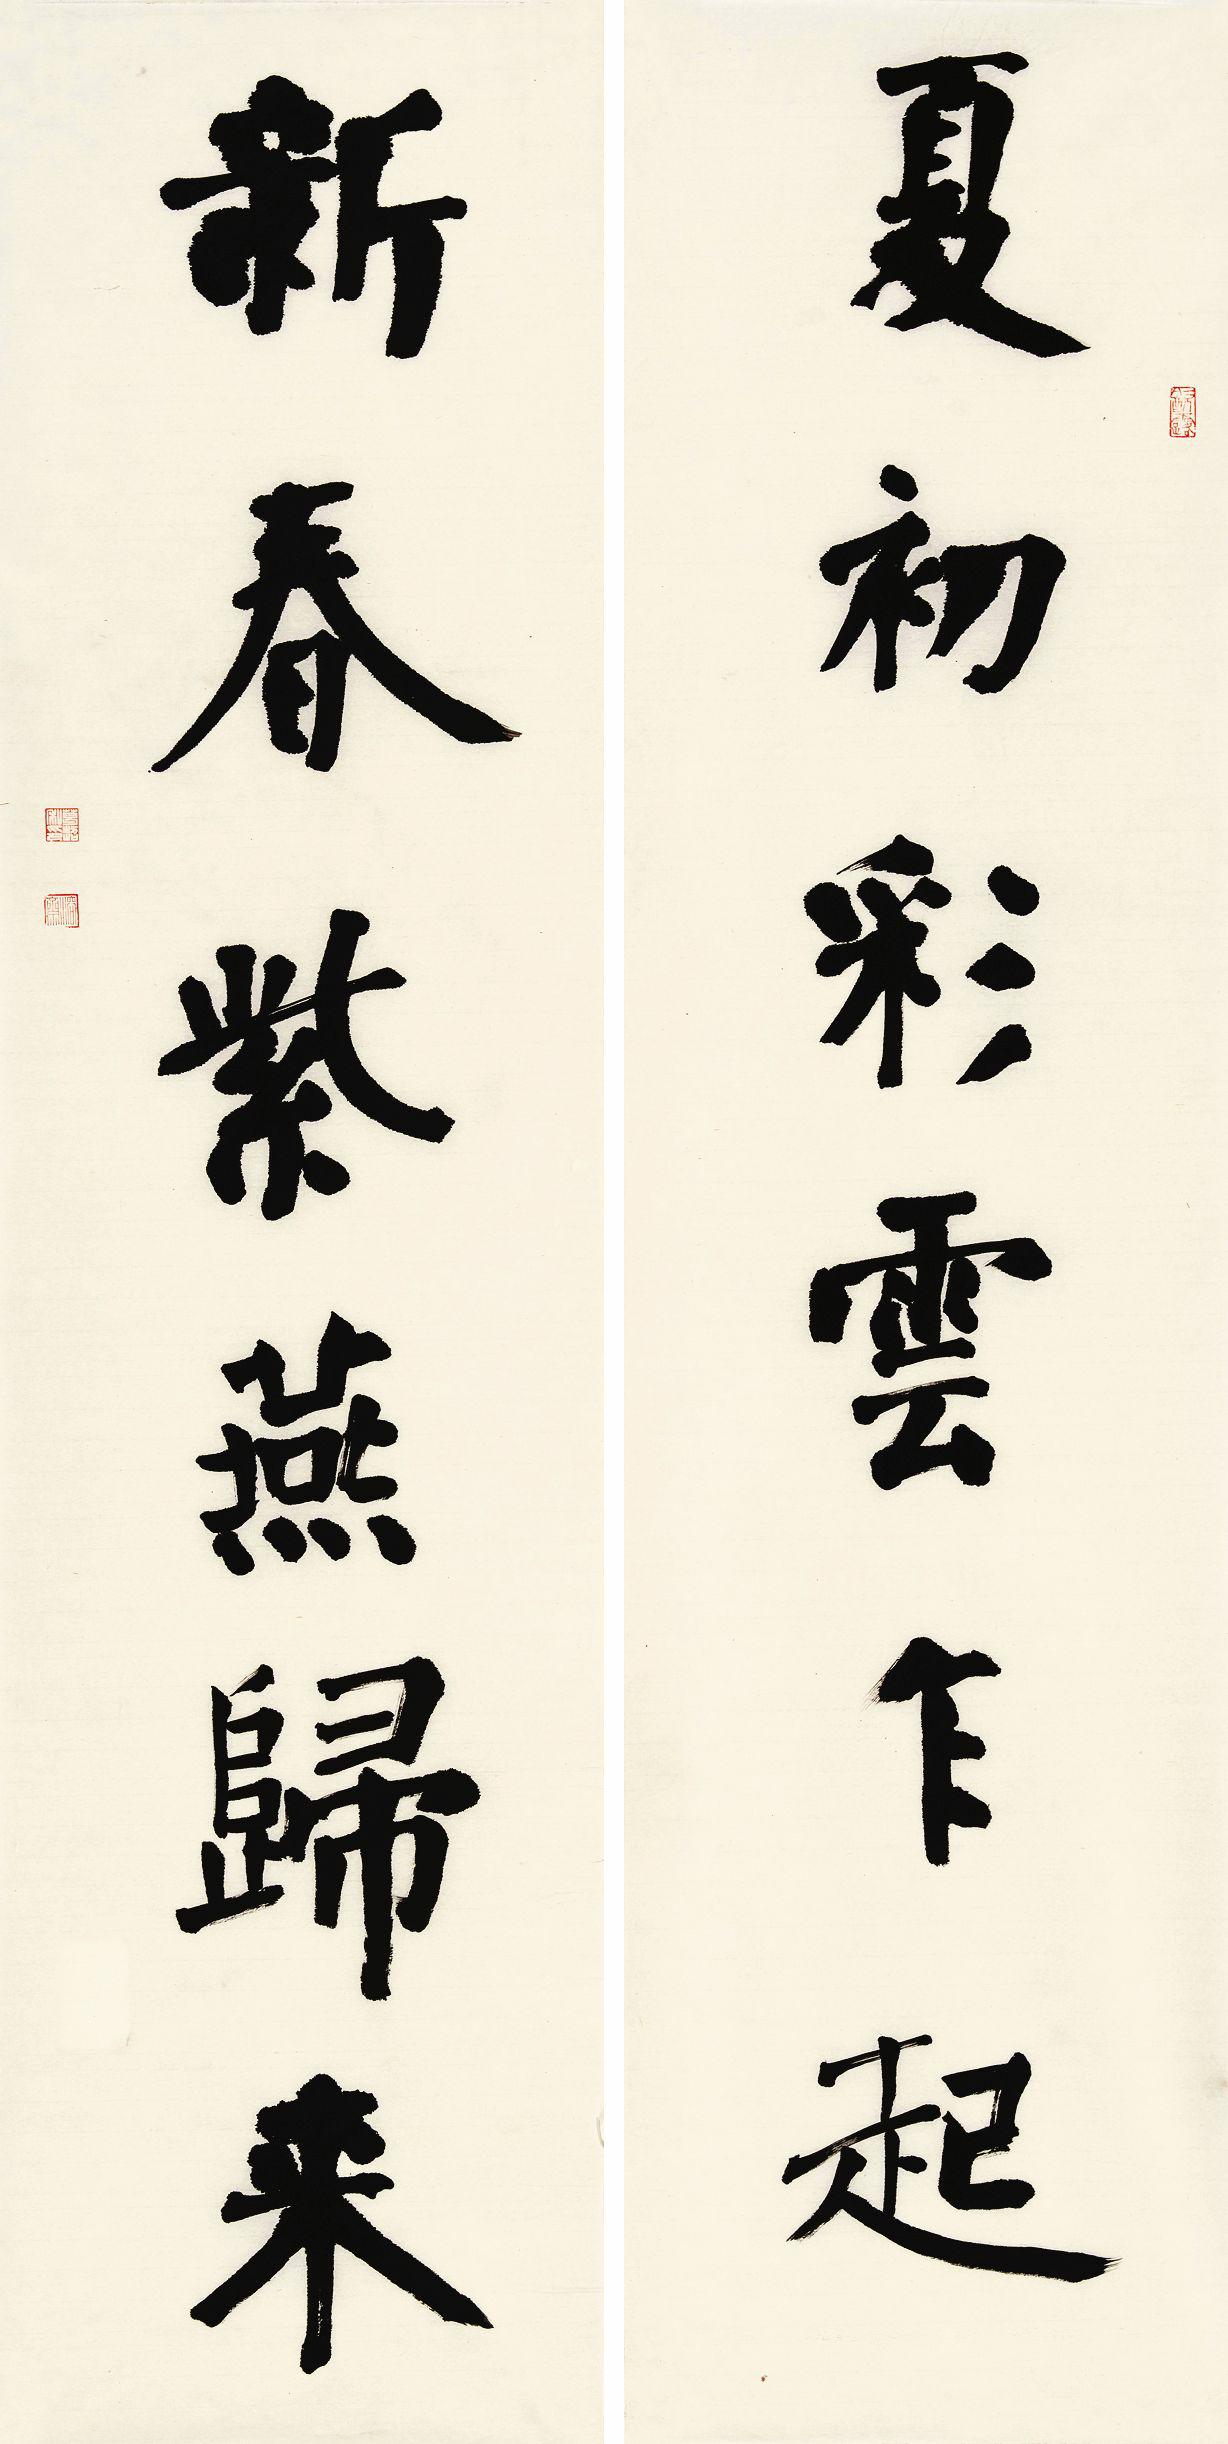 夏初彩雲乍起
新春紫燕歸来